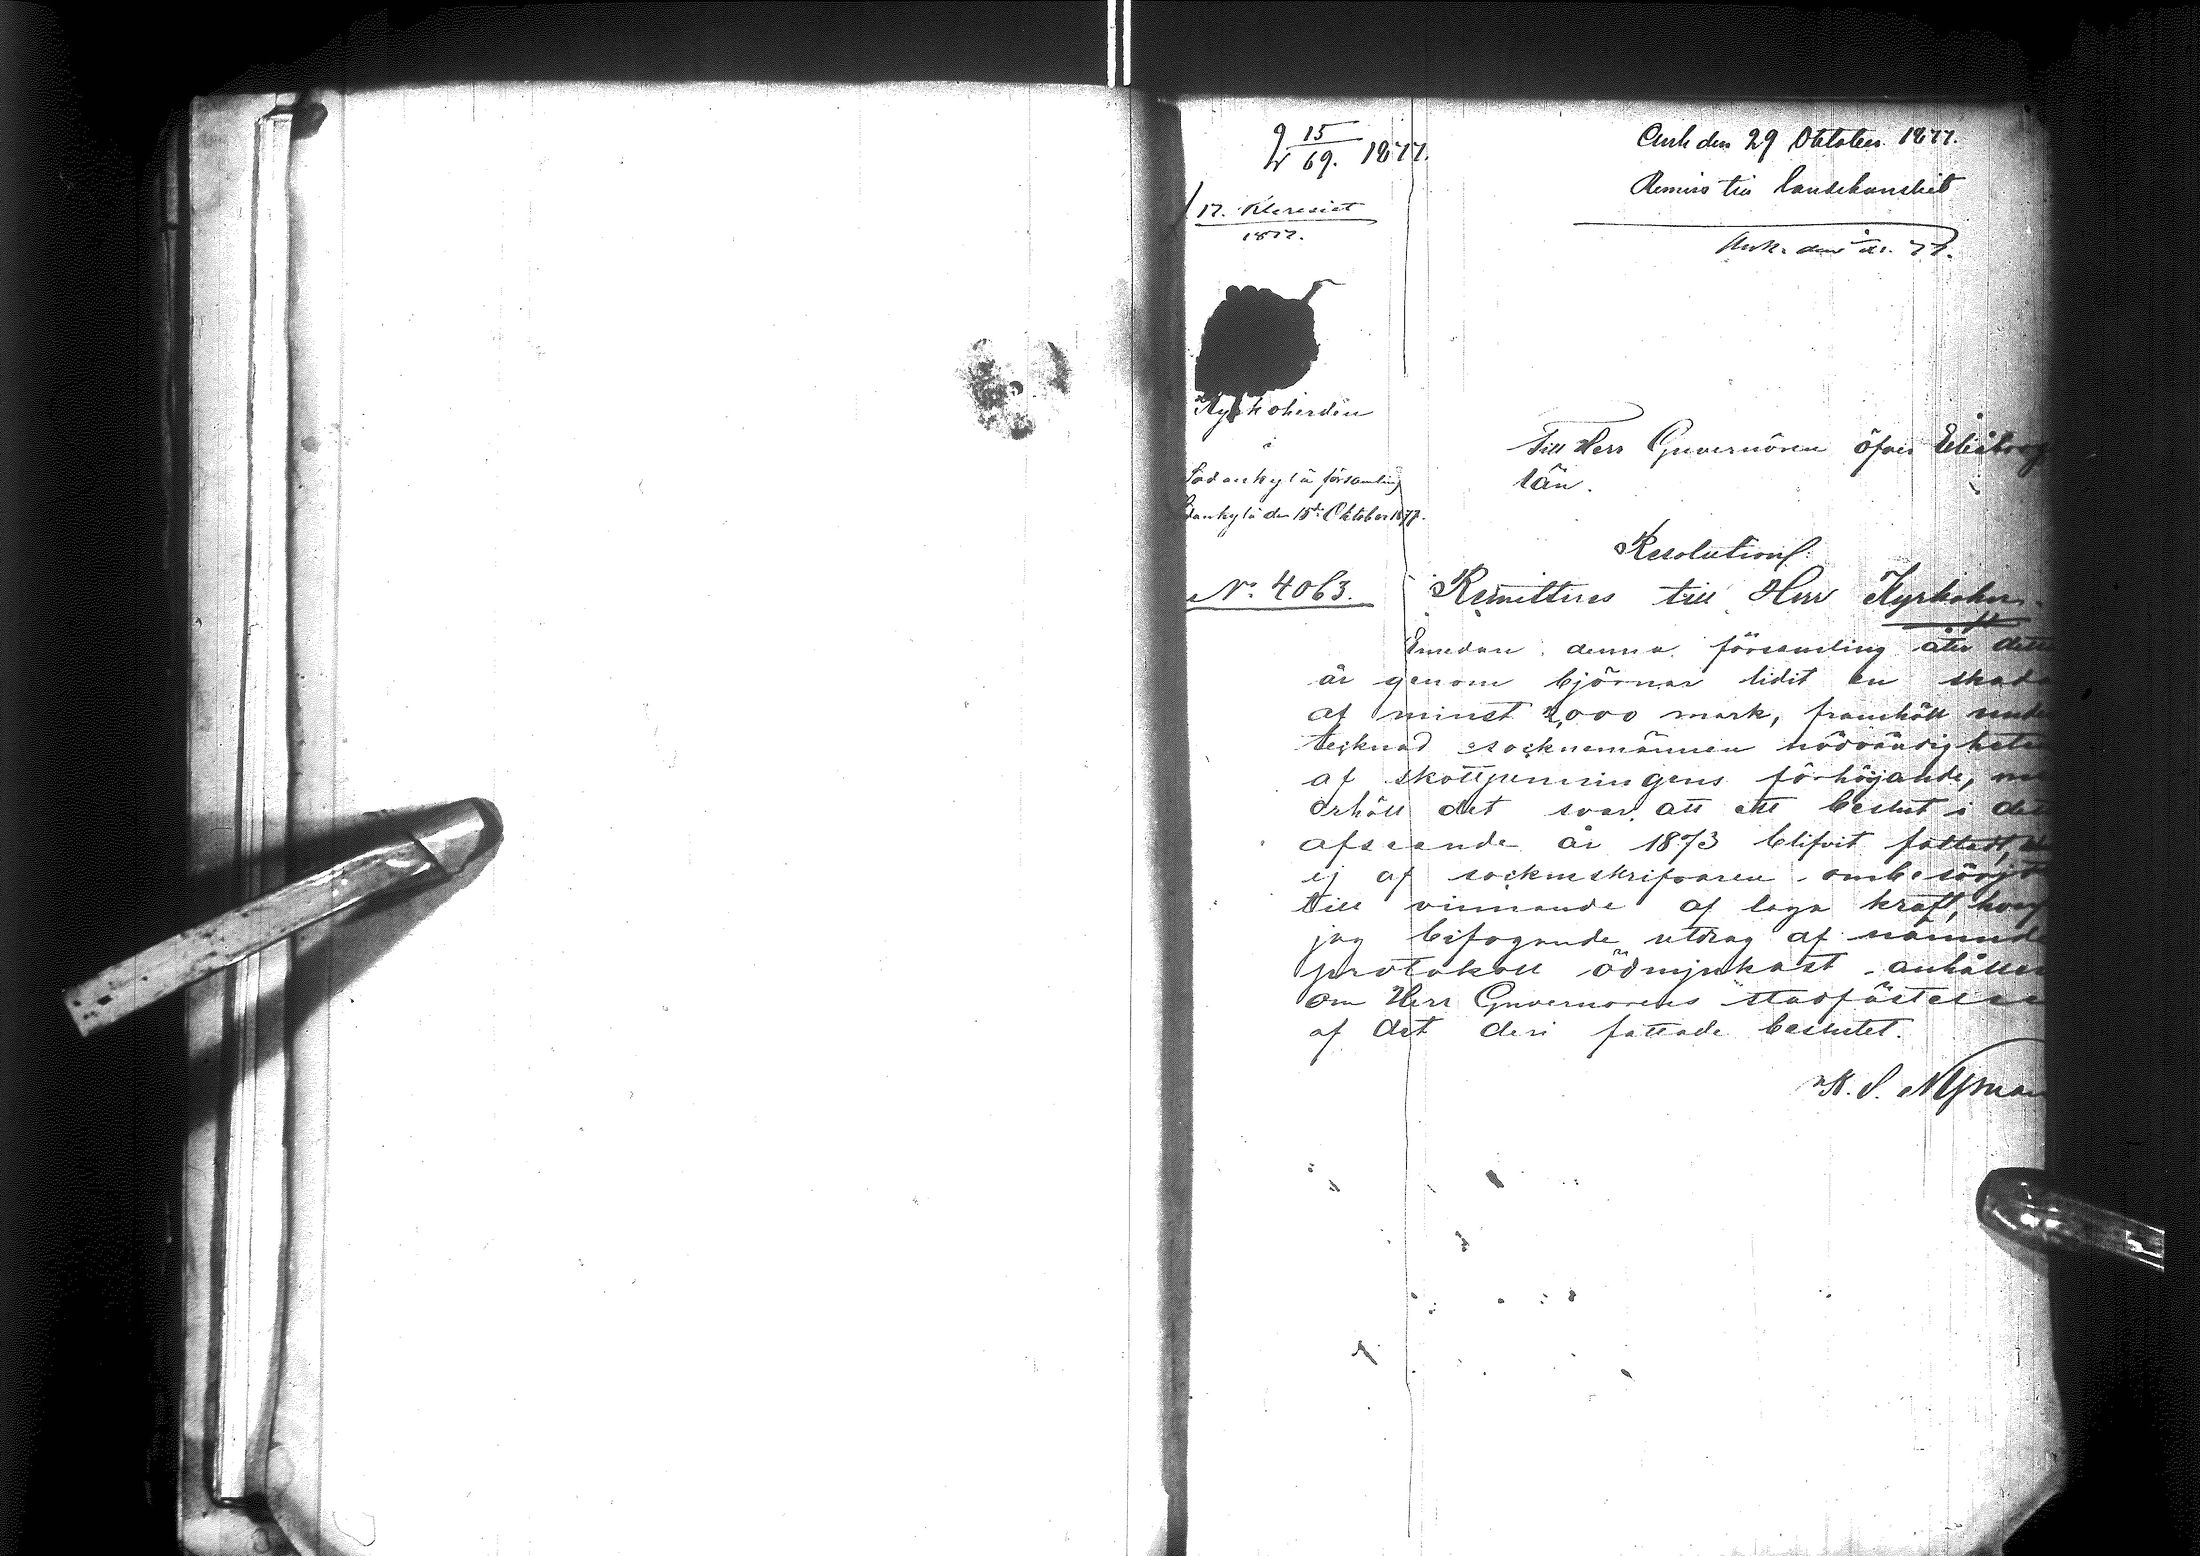 15
69. 1877.
17. Kleresiet
1877.
Ank den 29 Oktober 1877.
Remiss till landskansliet
Ank. den 77.
Kyrkoherden
i
Sodankylä församling
Sodankylä den 15de Oktober 1877.
Till Herr Guvernören öfver Uleåborgs
län.
Resolution:
No. 4063.
Remitteras till Herr Kyrkoher
Emedan denna församling åter detta
år genom björnar lidit en skada
af minst 2,000 mark, framhöll under
tecknad socknemännen nödvändigheten
af skottpenningens förhöjande, men
erhöll det svar, att ett beslut i det
afseende år 1873 blifvit fattadt, men
ej af socknskrifvaren ombesörjdt
till vinnande af laga kraft, hvarför
jag bifogande utdrag af nämnde
protokoll ödmjukast anhåller
om Herr Guvernörens stadfästelse
af det deri fattade beslutet.
K. S. Nyman